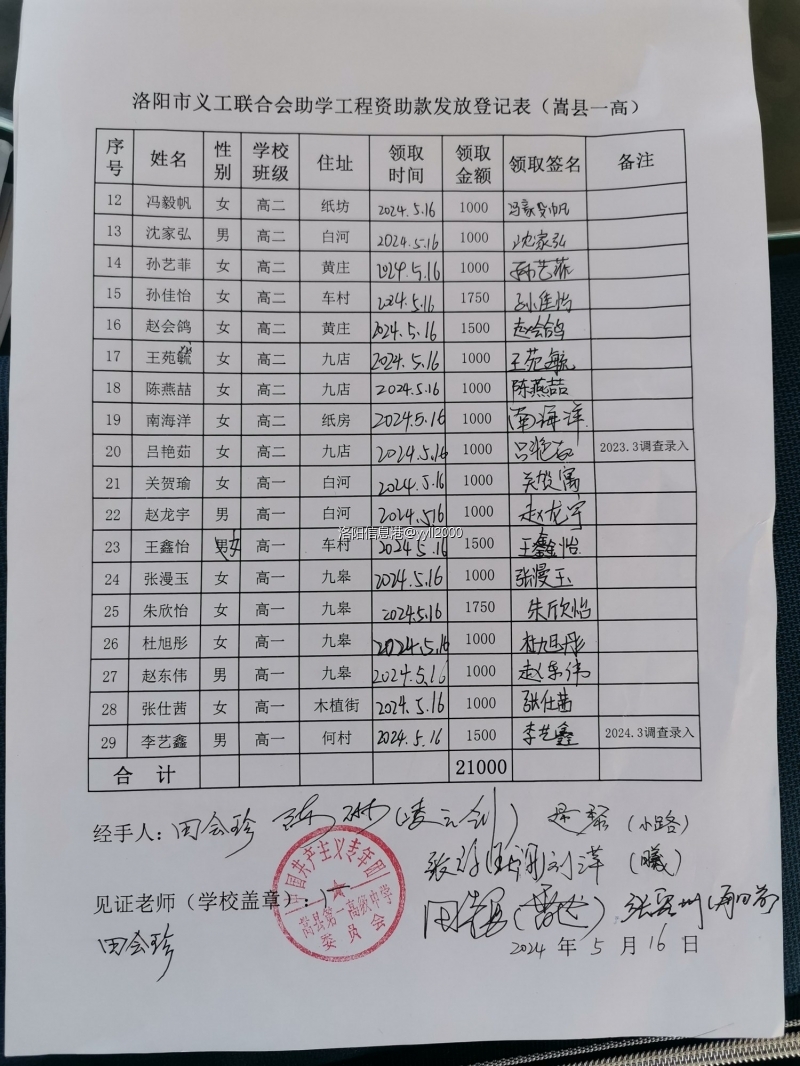 洛阳市义工联合会助学工程资助款发放登记表（嵩县一高）
序号 姓名 性别 学校班级 住址 领取时间 领取金额 领取签名 备注
12 冯毅帆 女 高二 纸坊 2024.5.16 1000 冯毅帆
13 沈家弘 男 高二 白河 2024.5.16 1000 沈家弘
14 孙艺菲 女 高二 黄庄 2024.5.16 1000 孙艺菲
15 孙佳怡 女 高二 车村 2024.5.16 1750 孙佳怡
16 赵会鸽 女 高二 黄庄 2024.5.16 1500 赵会鸽
17 王苑毓 女 高二 九店 2024.5.16 1000 王苑毓
18 陈燕喆 女 高二 九店 2024.5.16 1000 陈燕喆
19 南海洋 女 高二 纸房 2024.5.16 1000 南海洋
20 吕艳茹 女 高二 九店 2024.5.16 1000 吕艳茹 2023.3调查录入
21 关贺瑜 女 高一 白河 2024.5.16 1000
22 赵龙宇 男 高一 白河 2024.5.16 1000 赵龙宇
洛阳信息港@yyll2000
23 王鑫怡 女 高一 车村 2024.5.16 1500 王鑫怡
24 张漫玉 女 高一 九皋 2024.5.16 1000 张漫玉
25 朱欣怡 女 高一 九皋 2024.5.16 1750 朱欣怡
26 杜旭彤 女 高一 九皋 2024.5.16 1000 杜旭彤
27 赵东伟 男 高一 九皋 2024.5.16 1000 赵东伟
28 张仕茜 女 高一 木植街 2024.5.16 1000 张仕茜
29 李艺鑫 男 高一 何村 2024.5.16 1500 李艺鑫 2024.3调查录入
合 计 21000
经手人：田会珍 (凌云剑) (小路)
刘萍 (曦)
见证老师（学校盖章）：
田会珍
中国共产主义青年团
嵩县第一高级中学
委员会
2024 年 5 月 16 日